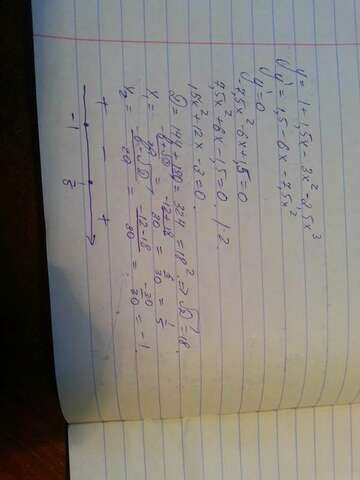 y = 1 + 1,5x - 3x² - 2,5x³
y' = 1,5 - 6x - 7,5x²
y' = 0
-7,5x² - 6x + 1,5 = 0
7,5x² + 6x - 1,5 = 0 | ·2
15x² + 12x - 3 = 0
D = 144 + 180 = 324 = 18² => √D = 18
x₁ = (-b+√D)/2a = (-12+18)/30 = 6/30 = 1/5
x₂ = (-b-√D)/2a = (-12-18)/30 = -30/30 = -1
+ - +
-1 1/5